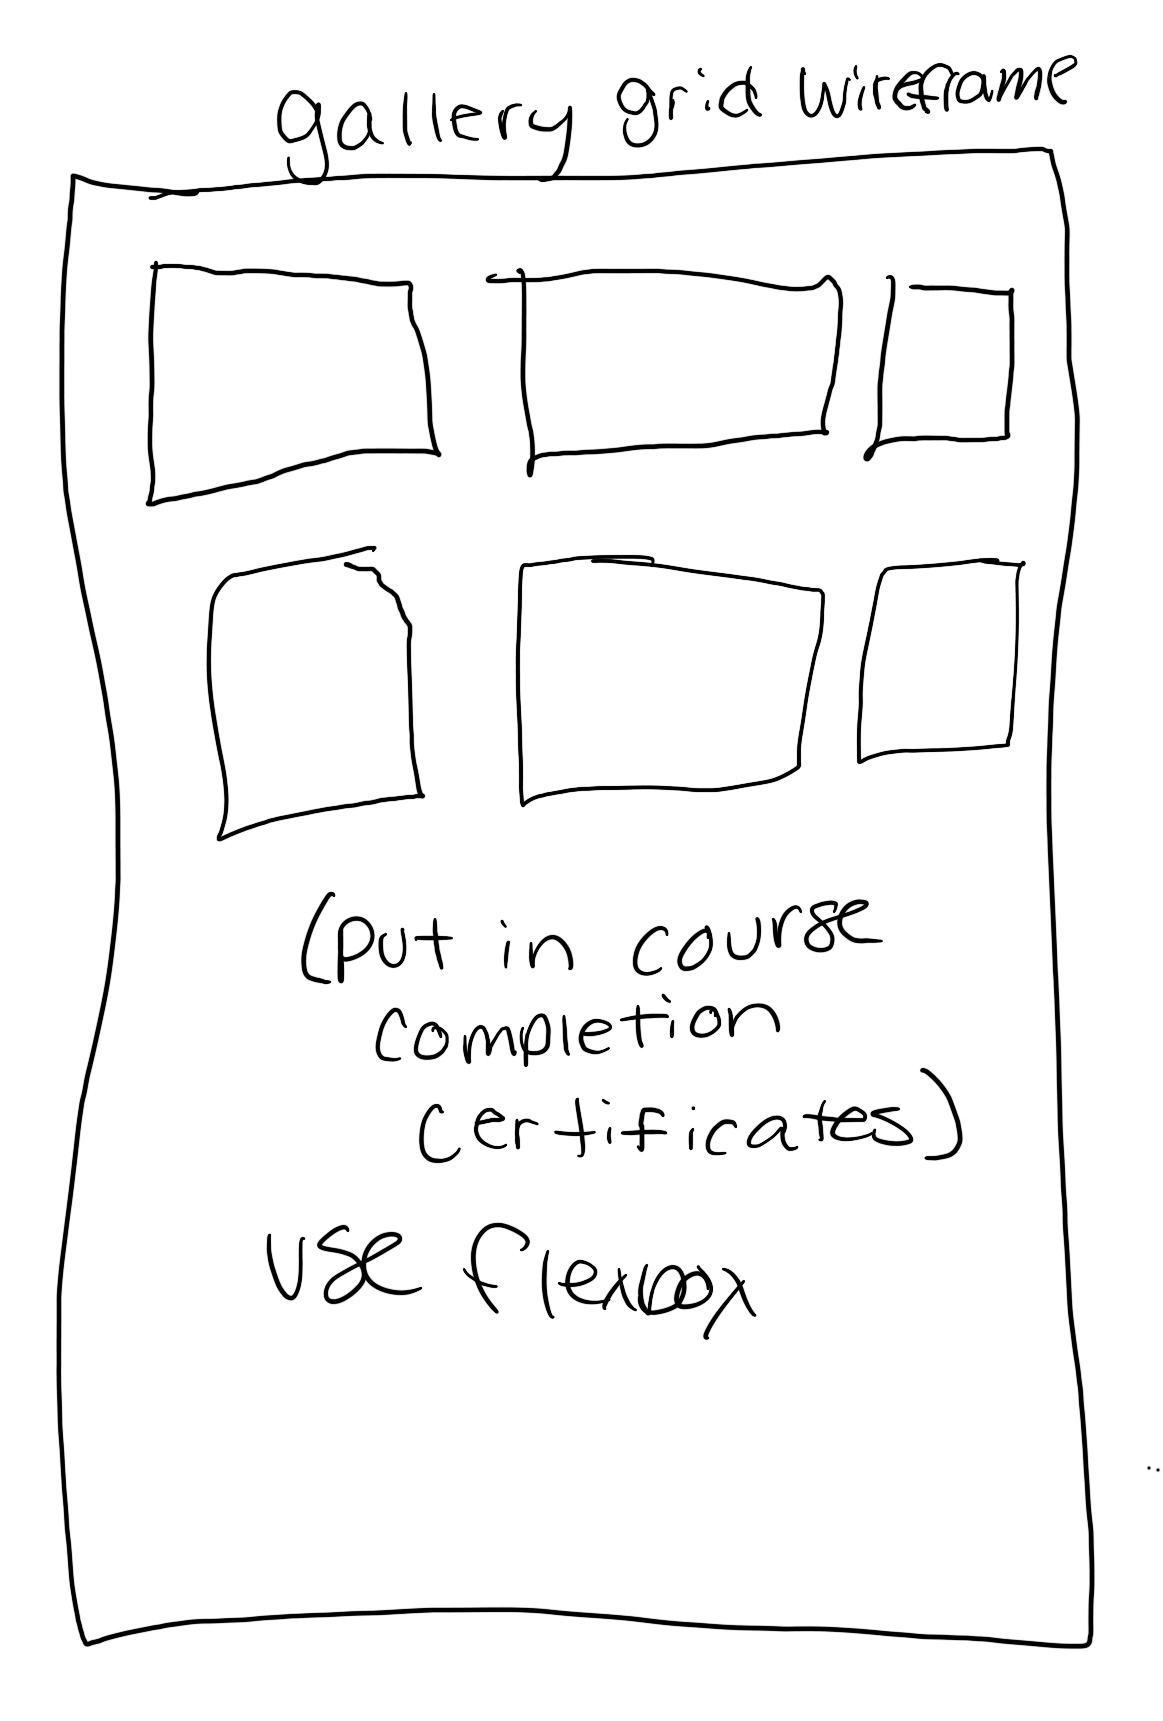 gallery grid wireframe
(put in course
completion
certificates)
use flexbox